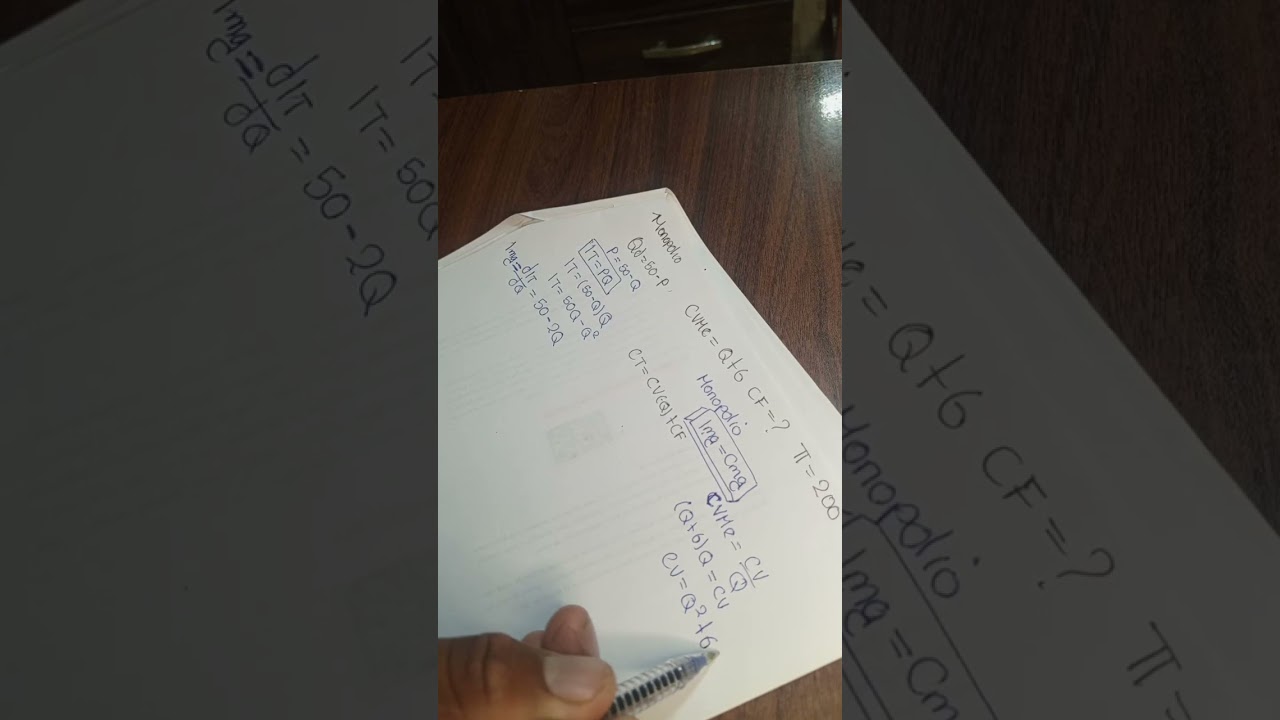 Monopolio
Qd=50-P
P=50-Q
IT=PQ
IT=(50-Q)Q
IT=50Q-Q²
Img=dIT/dQ=50-2Q
CVMe=Q+6 CF=? π=200
Monopolio
Img=Cmg
CT=CV(Q)+CF
CVMe=CV/Q
(Q+6)Q=CV
CV=Q²+6